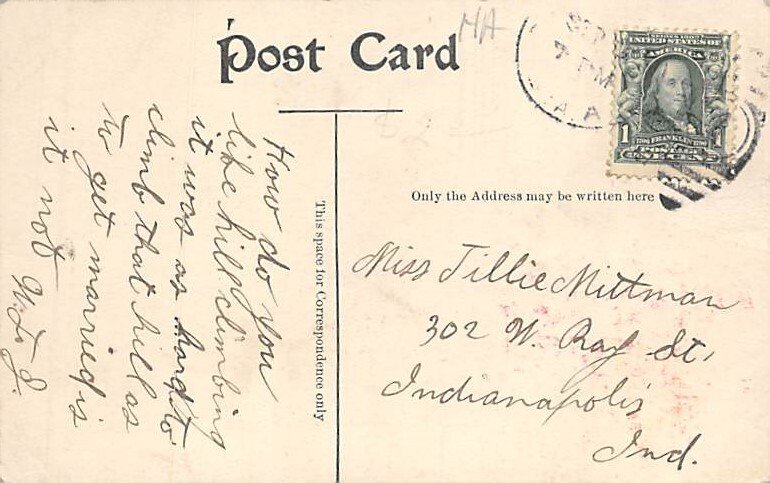 Post Card
HA
SEP
7 PM
SERIES 1902
UNITED STATES OF
AMERICA
1
FRANKLIN
POSTAGE
ONE CENT
Only the Address may be written here
This space for Correspondence only
How do you
like hill climbing
it was as hard to
climb that hill as
to get married is
it not W. L. J.
Miss Tillie Mittman
302 W. Ray St,
Indianapolis
Ind.